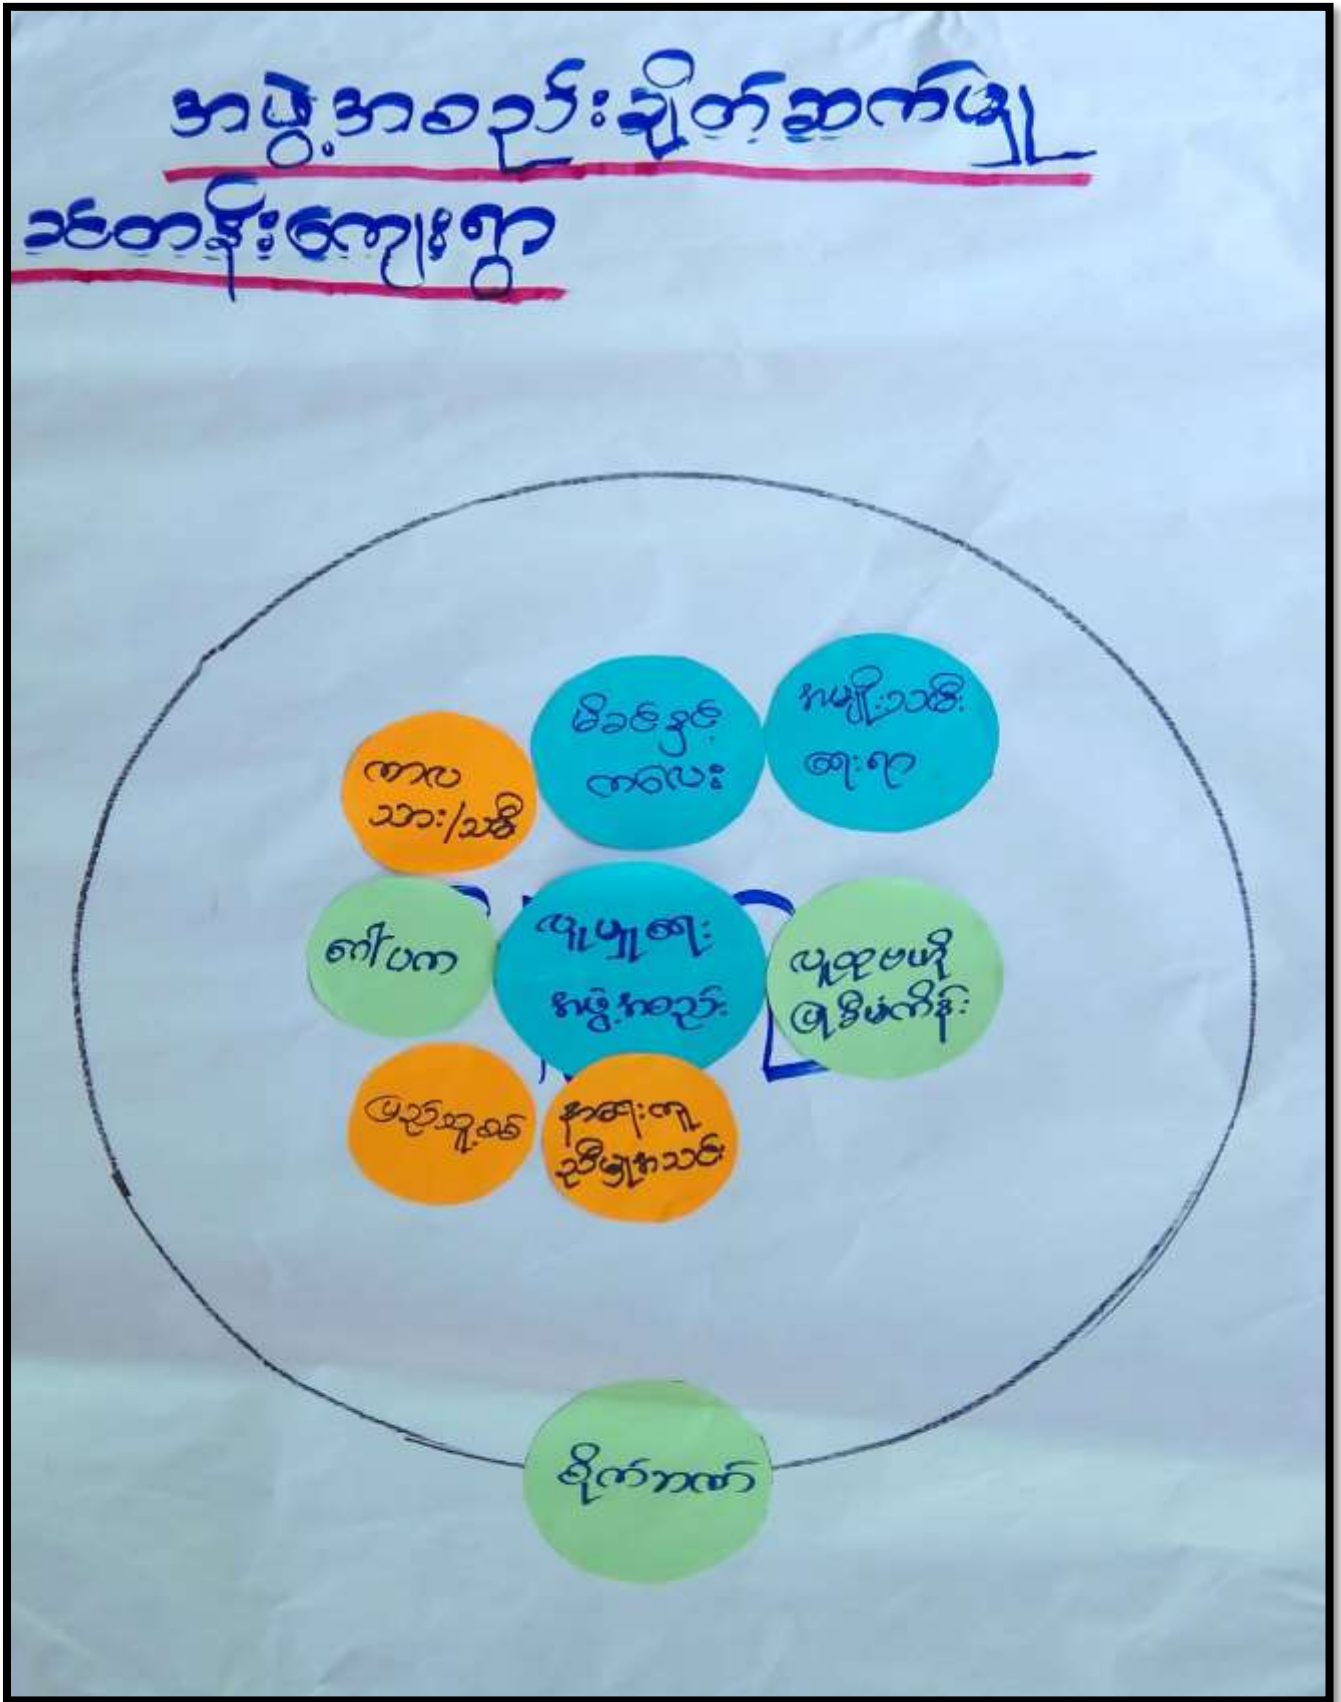 အဖွဲ့အစည်းချိတ်ဆက်မှု
ခင်တန်းကျေးရွာ
မိခင်နှင့်
ကလေး
အမျိုးသမီး
ရေးရာ
ကာလ
သား/သမီး
ဂေါပက
လူမှုရေး
အဖွဲ့အစည်း
လူထုဗဟို
ပြုစီမံကိန်း
ပြည်သူ့စစ်
နာရေးကူ
ညီမှုအသင်း
စိုက်ဘဏ်